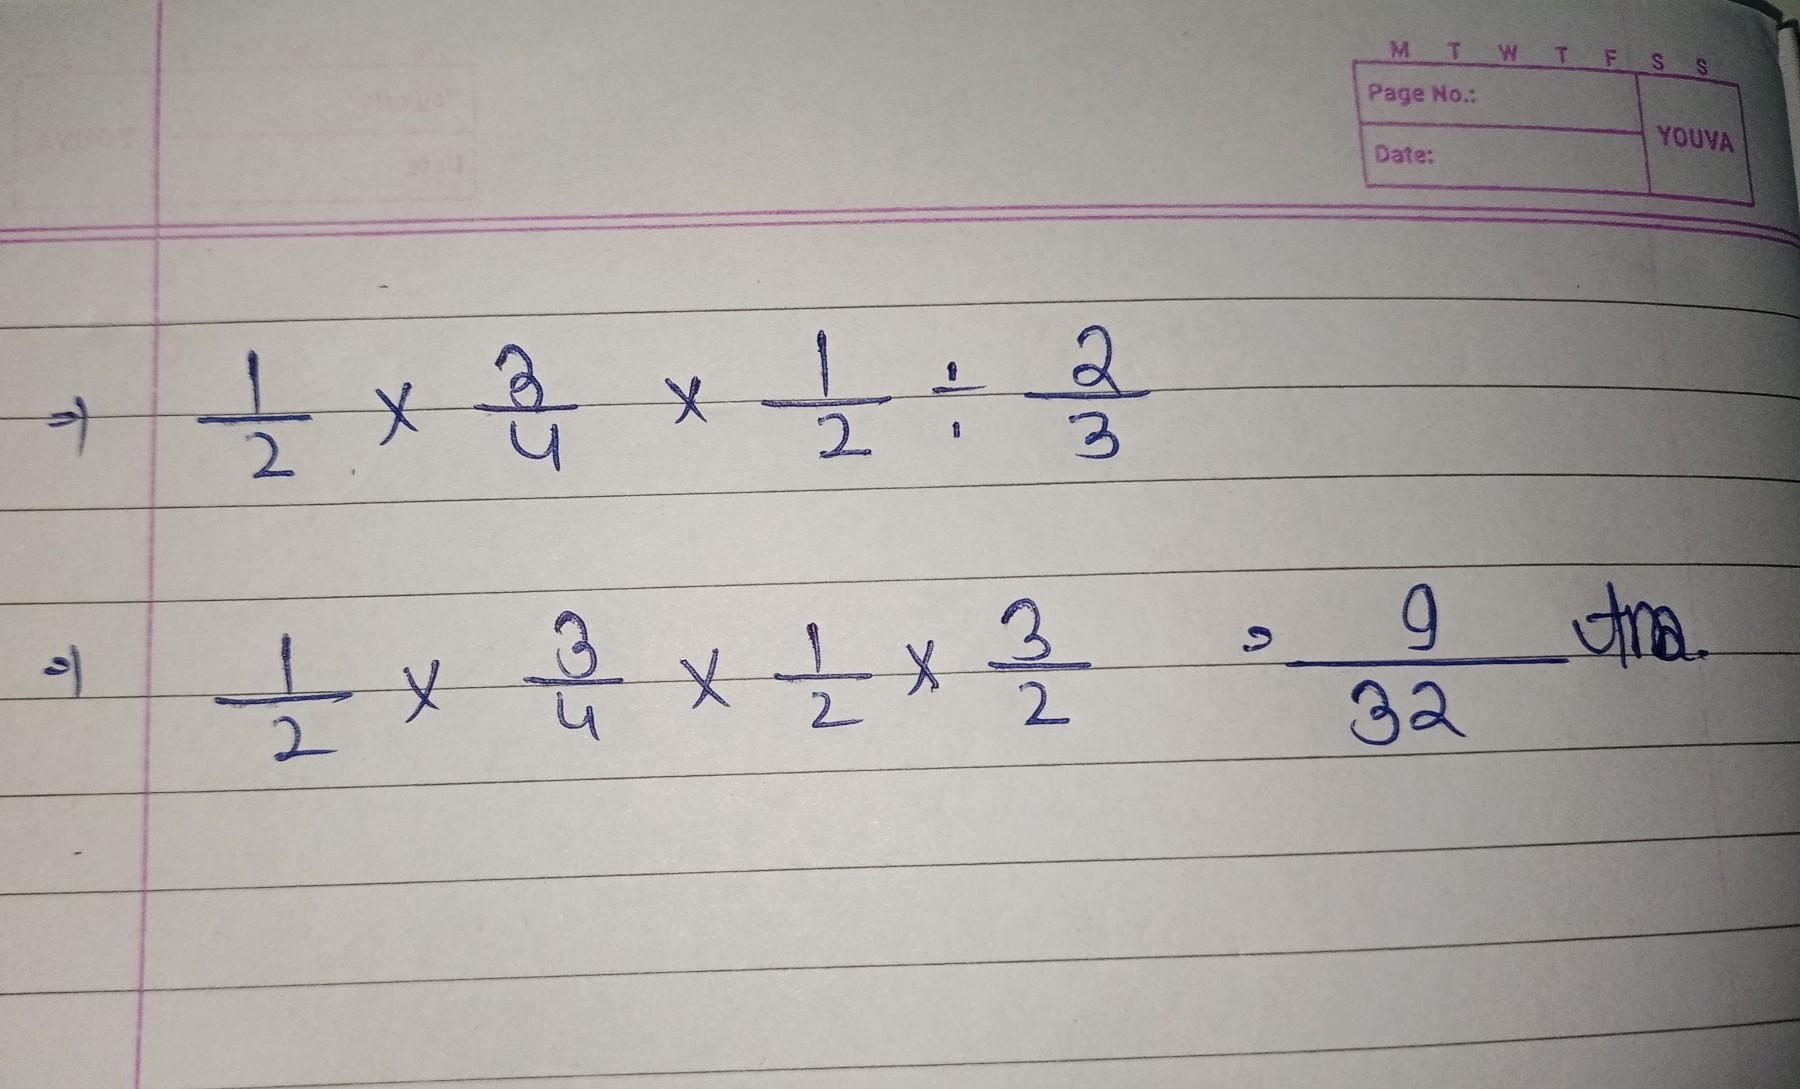 M T W T F S S
Page No.:
YOUVA
Date:
⇒ 1/2 × 3/4 × 1/2 ÷ 2/3
⇒ 1/2 × 3/4 × 1/2 × 3/2 = 9/32 Ans.